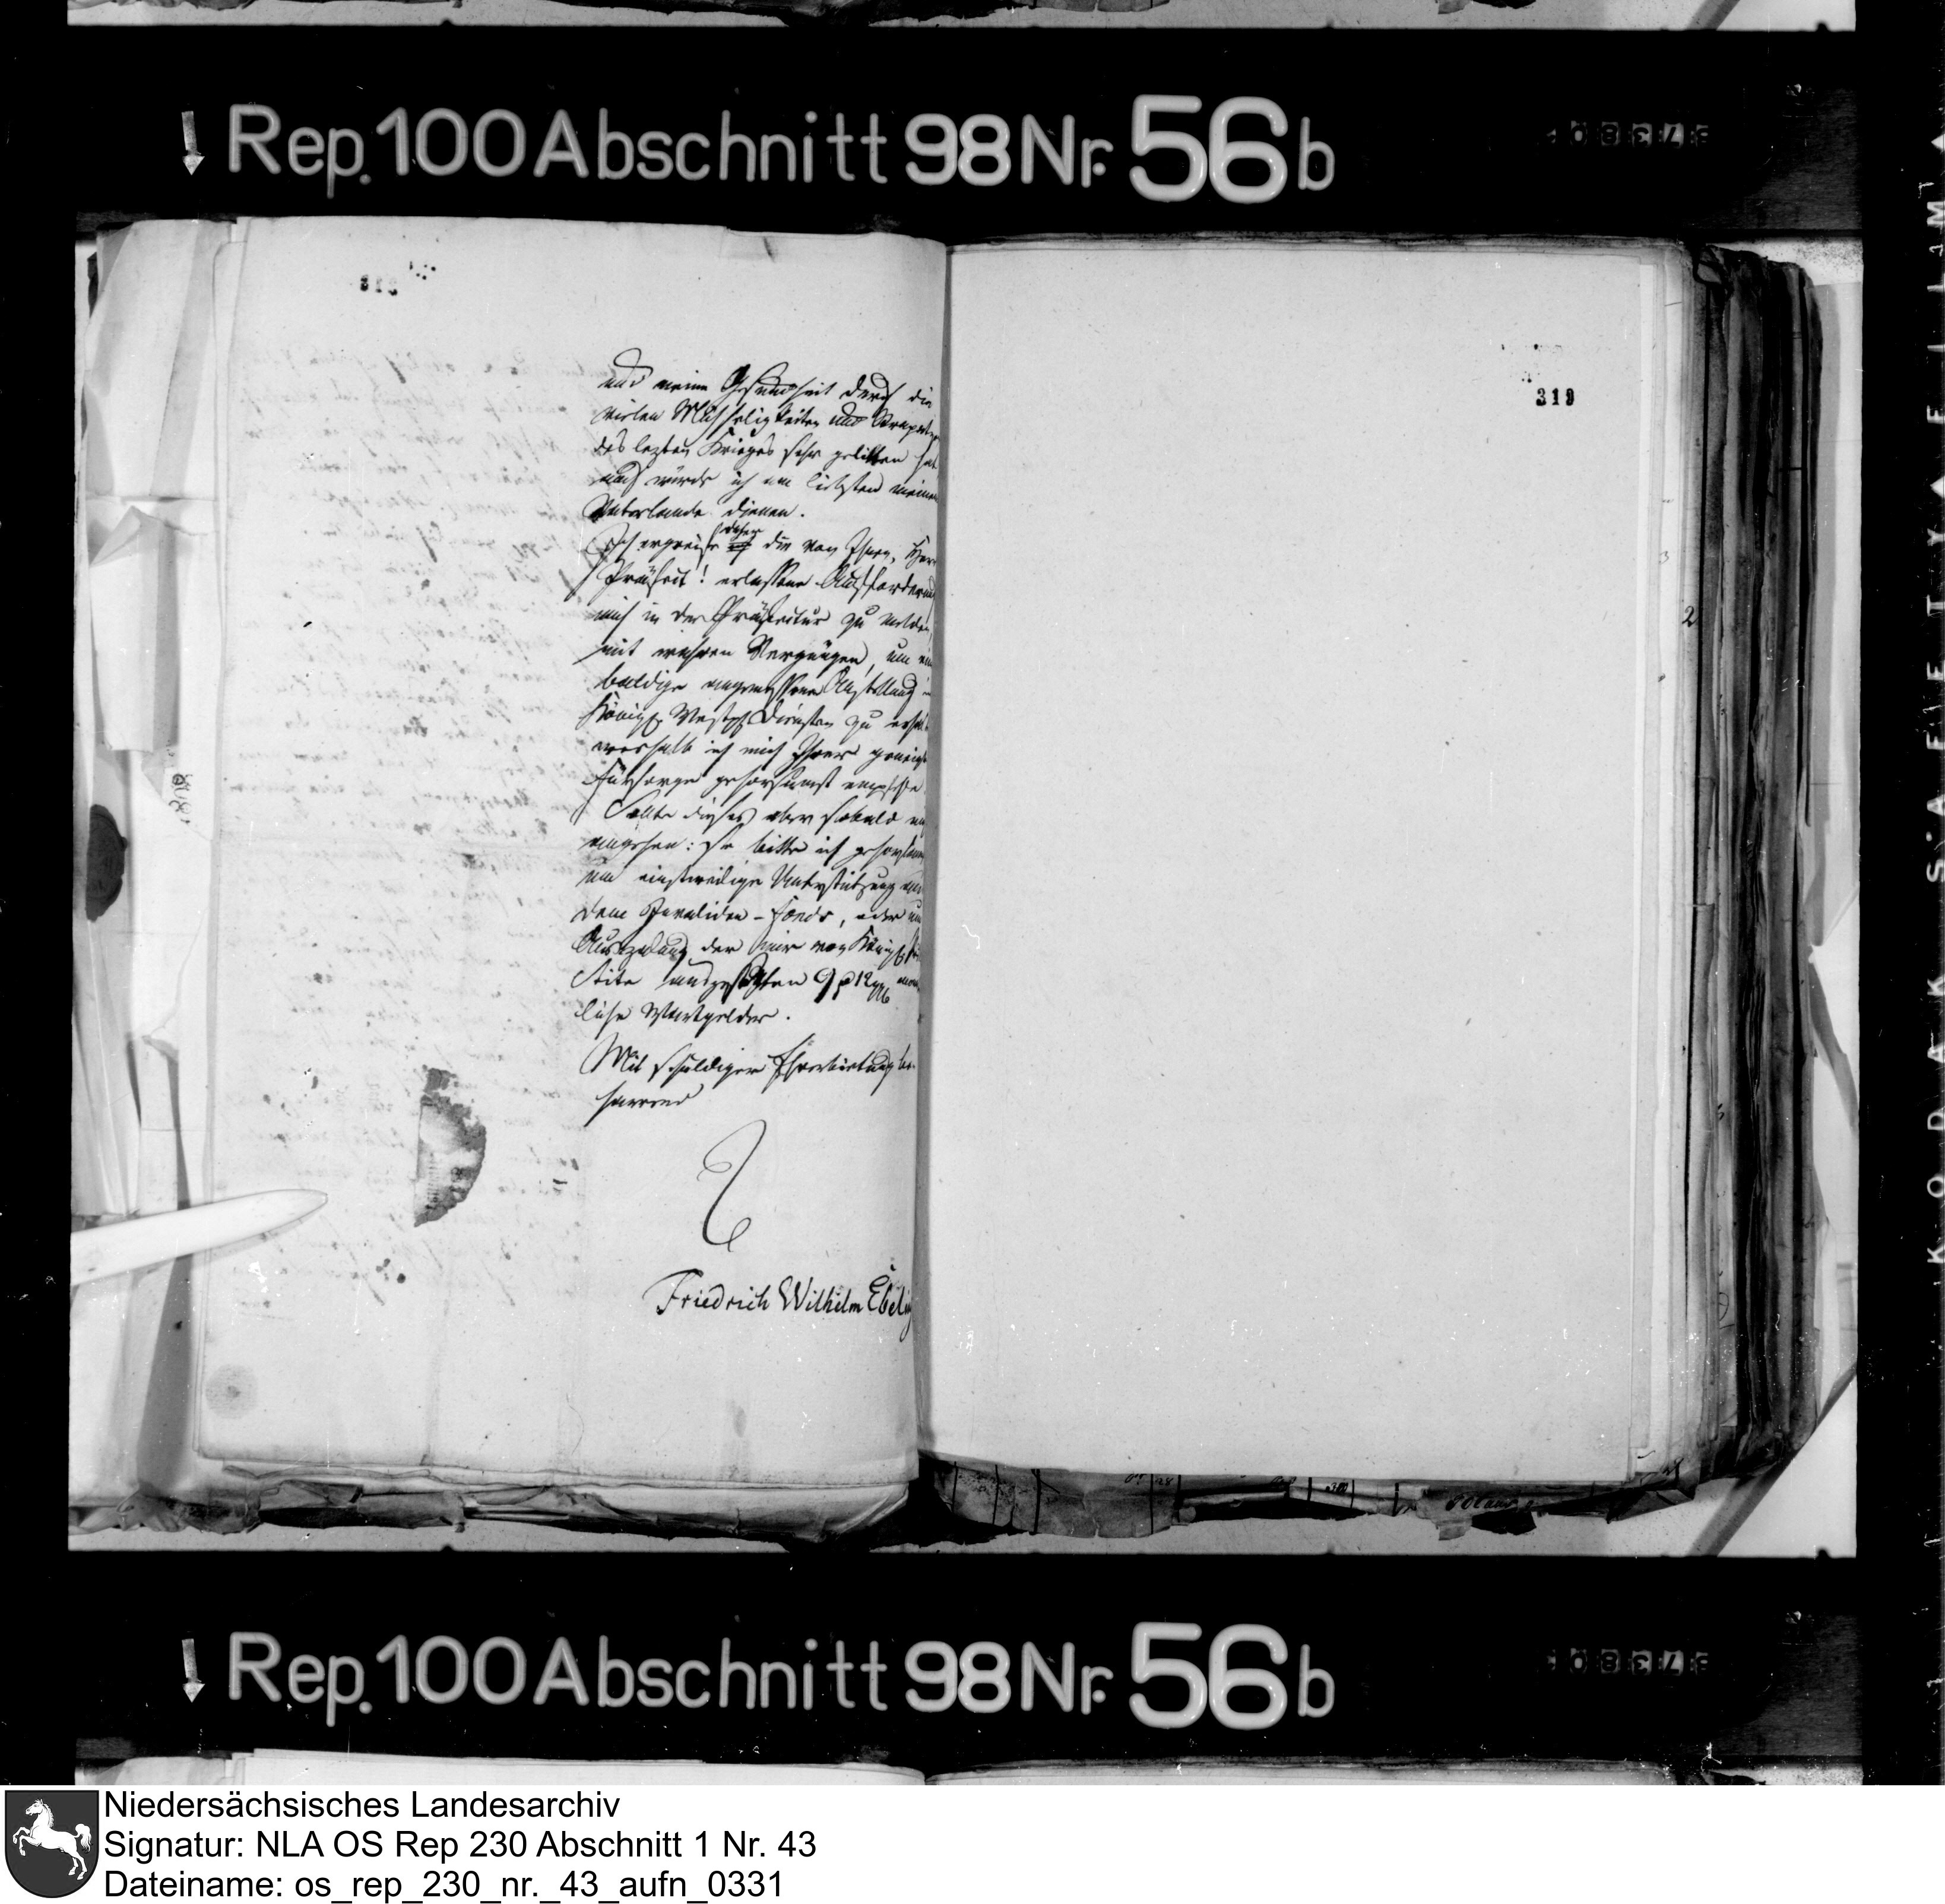 Rep. 100 Abschnitt 98 Nr. 56 b
319
und meine Gesundheit durch die
vielen Mühseligkeiten und
des lezten Krieges sehr gelitten hat
auch würde ich am liebsten meinem
Vaterlande dienen.
Ich ergreife daher die von Ihnen, Herr
Präfect! erlassene Aufforderung
mich in der Präfectur zu melden,
mit wahren Vergnügen, um
baldige angemessene Anstellung in
Königl. Westph. Diensten zu
weshalb ich mich Ihrer
Fürsorge gehorsamst empfehle.
Sollte dieses aber sobald
angehen: so bitte ich gehorsamst
um einstweilige Unterstützung aus
dem Invaliden-Fonds, oder um
Auszalung der mir von Königl.
Seite ausgesetzten 9 12
liche Wartgelder.
Mit schuldiger Ehrerbietung be-
harrend
Friedrich Wilhelm Ebeling
Rep. 100 Abschnitt 98 Nr. 56 b
Niedersächsisches Landesarchiv
Signatur: NLA OS Rep 230 Abschnitt 1 Nr. 43
Dateiname: os_rep_230_nr._43_aufn_0331